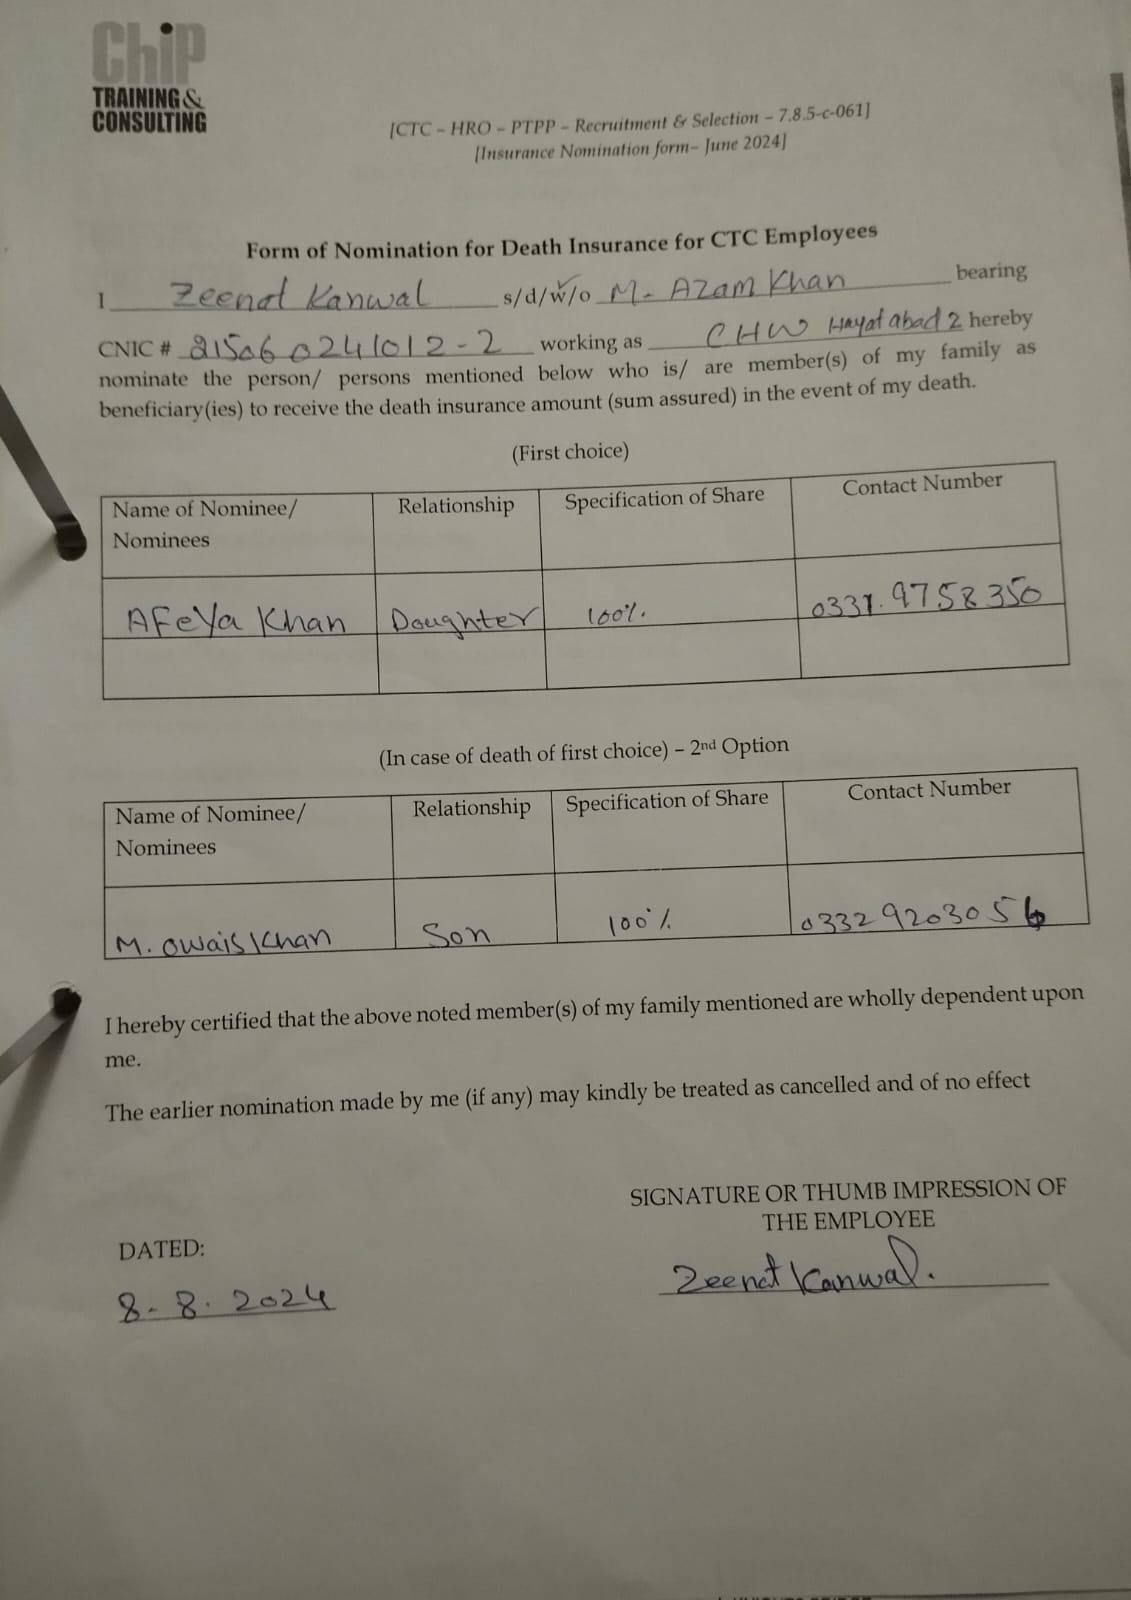 Chip
TRAINING &
CONSULTING
[CTC – HRO – PTPP – Recruitment & Selection – 7.8.5-c-061]
[Insurance Nomination form– June 2024]
Form of Nomination for Death Insurance for CTC Employees
I Zeenat Kanwal s/d/w/o M. Azam Khan bearing
CNIC # 21506 0241012-2 working as CHW Hayat abad 2 hereby
nominate the person/ persons mentioned below who is/ are member(s) of my family as
beneficiary(ies) to receive the death insurance amount (sum assured) in the event of my death.
(First choice)
Name of Nominee/ Nominees Relationship Specification of Share Contact Number
AFeya Khan Daughter 100%. 0331.9758350
(In case of death of first choice) – 2nd Option
Name of Nominee/ Nominees Relationship Specification of Share Contact Number
M. Owais Khan Son 100% 0332 9203056
I hereby certified that the above noted member(s) of my family mentioned are wholly dependent upon
me.
The earlier nomination made by me (if any) may kindly be treated as cancelled and of no effect
SIGNATURE OR THUMB IMPRESSION OF
THE EMPLOYEE
DATED:
Zeenat Kanwal.
8-8.2024